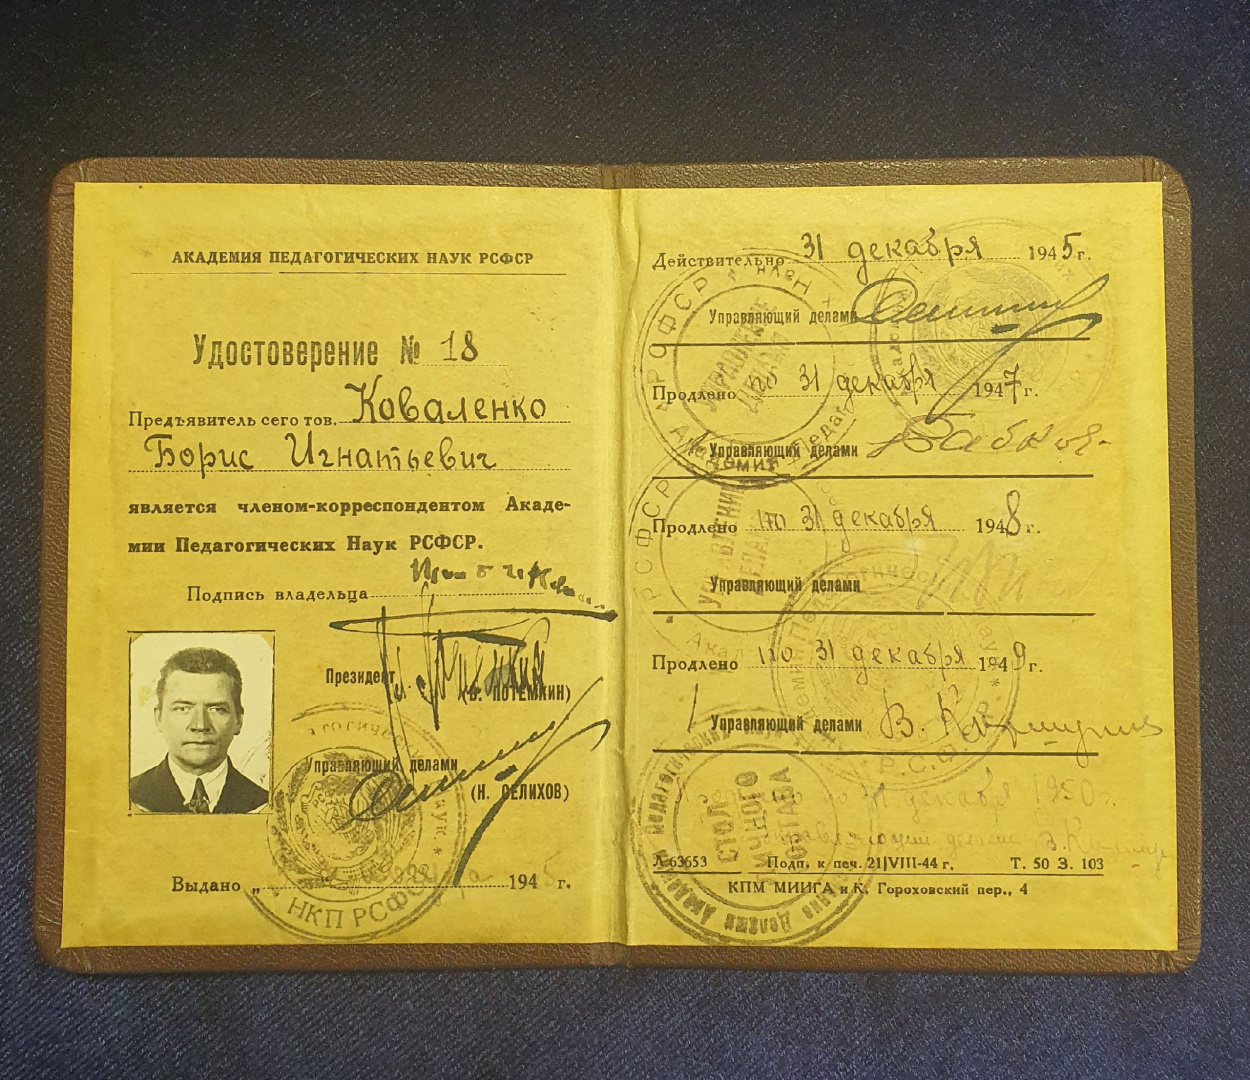 АКАДЕМИЯ ПЕДАГОГИЧЕСКИХ НАУК РСФСР
Удостоверение № 18
Предъявитель сего тов. Коваленко
Борис Игнатьевич
является членом-корреспондентом Акаде-
мии Педагогических Наук РСФСР.
Подпись владельца
Президент
(В. ПОТЕМКИН)
Управляющий делами
(Н. СЕЛИХОВ)
Выдано „ “ 194 г.
НКП РСФСР
Действительно 31 декабря 1945 г.
Управляющий делами
Продлено по 31 декабря 1947 г.
Управляющий делами
Продлено по 31 декабря 1948 г.
Управляющий делами
Продлено по 31 декабря 1949 г.
Управляющий делами
по 31 декабря 1950 г.
Управляющий делами
СТОЛ
ЛИЧНОГО
СОСТАВА
Л 63653 Подп. к печ. 21/VIII-44 г. Т. 50 З. 103
КПМ МИИГА и К. Гороховский пер., 4